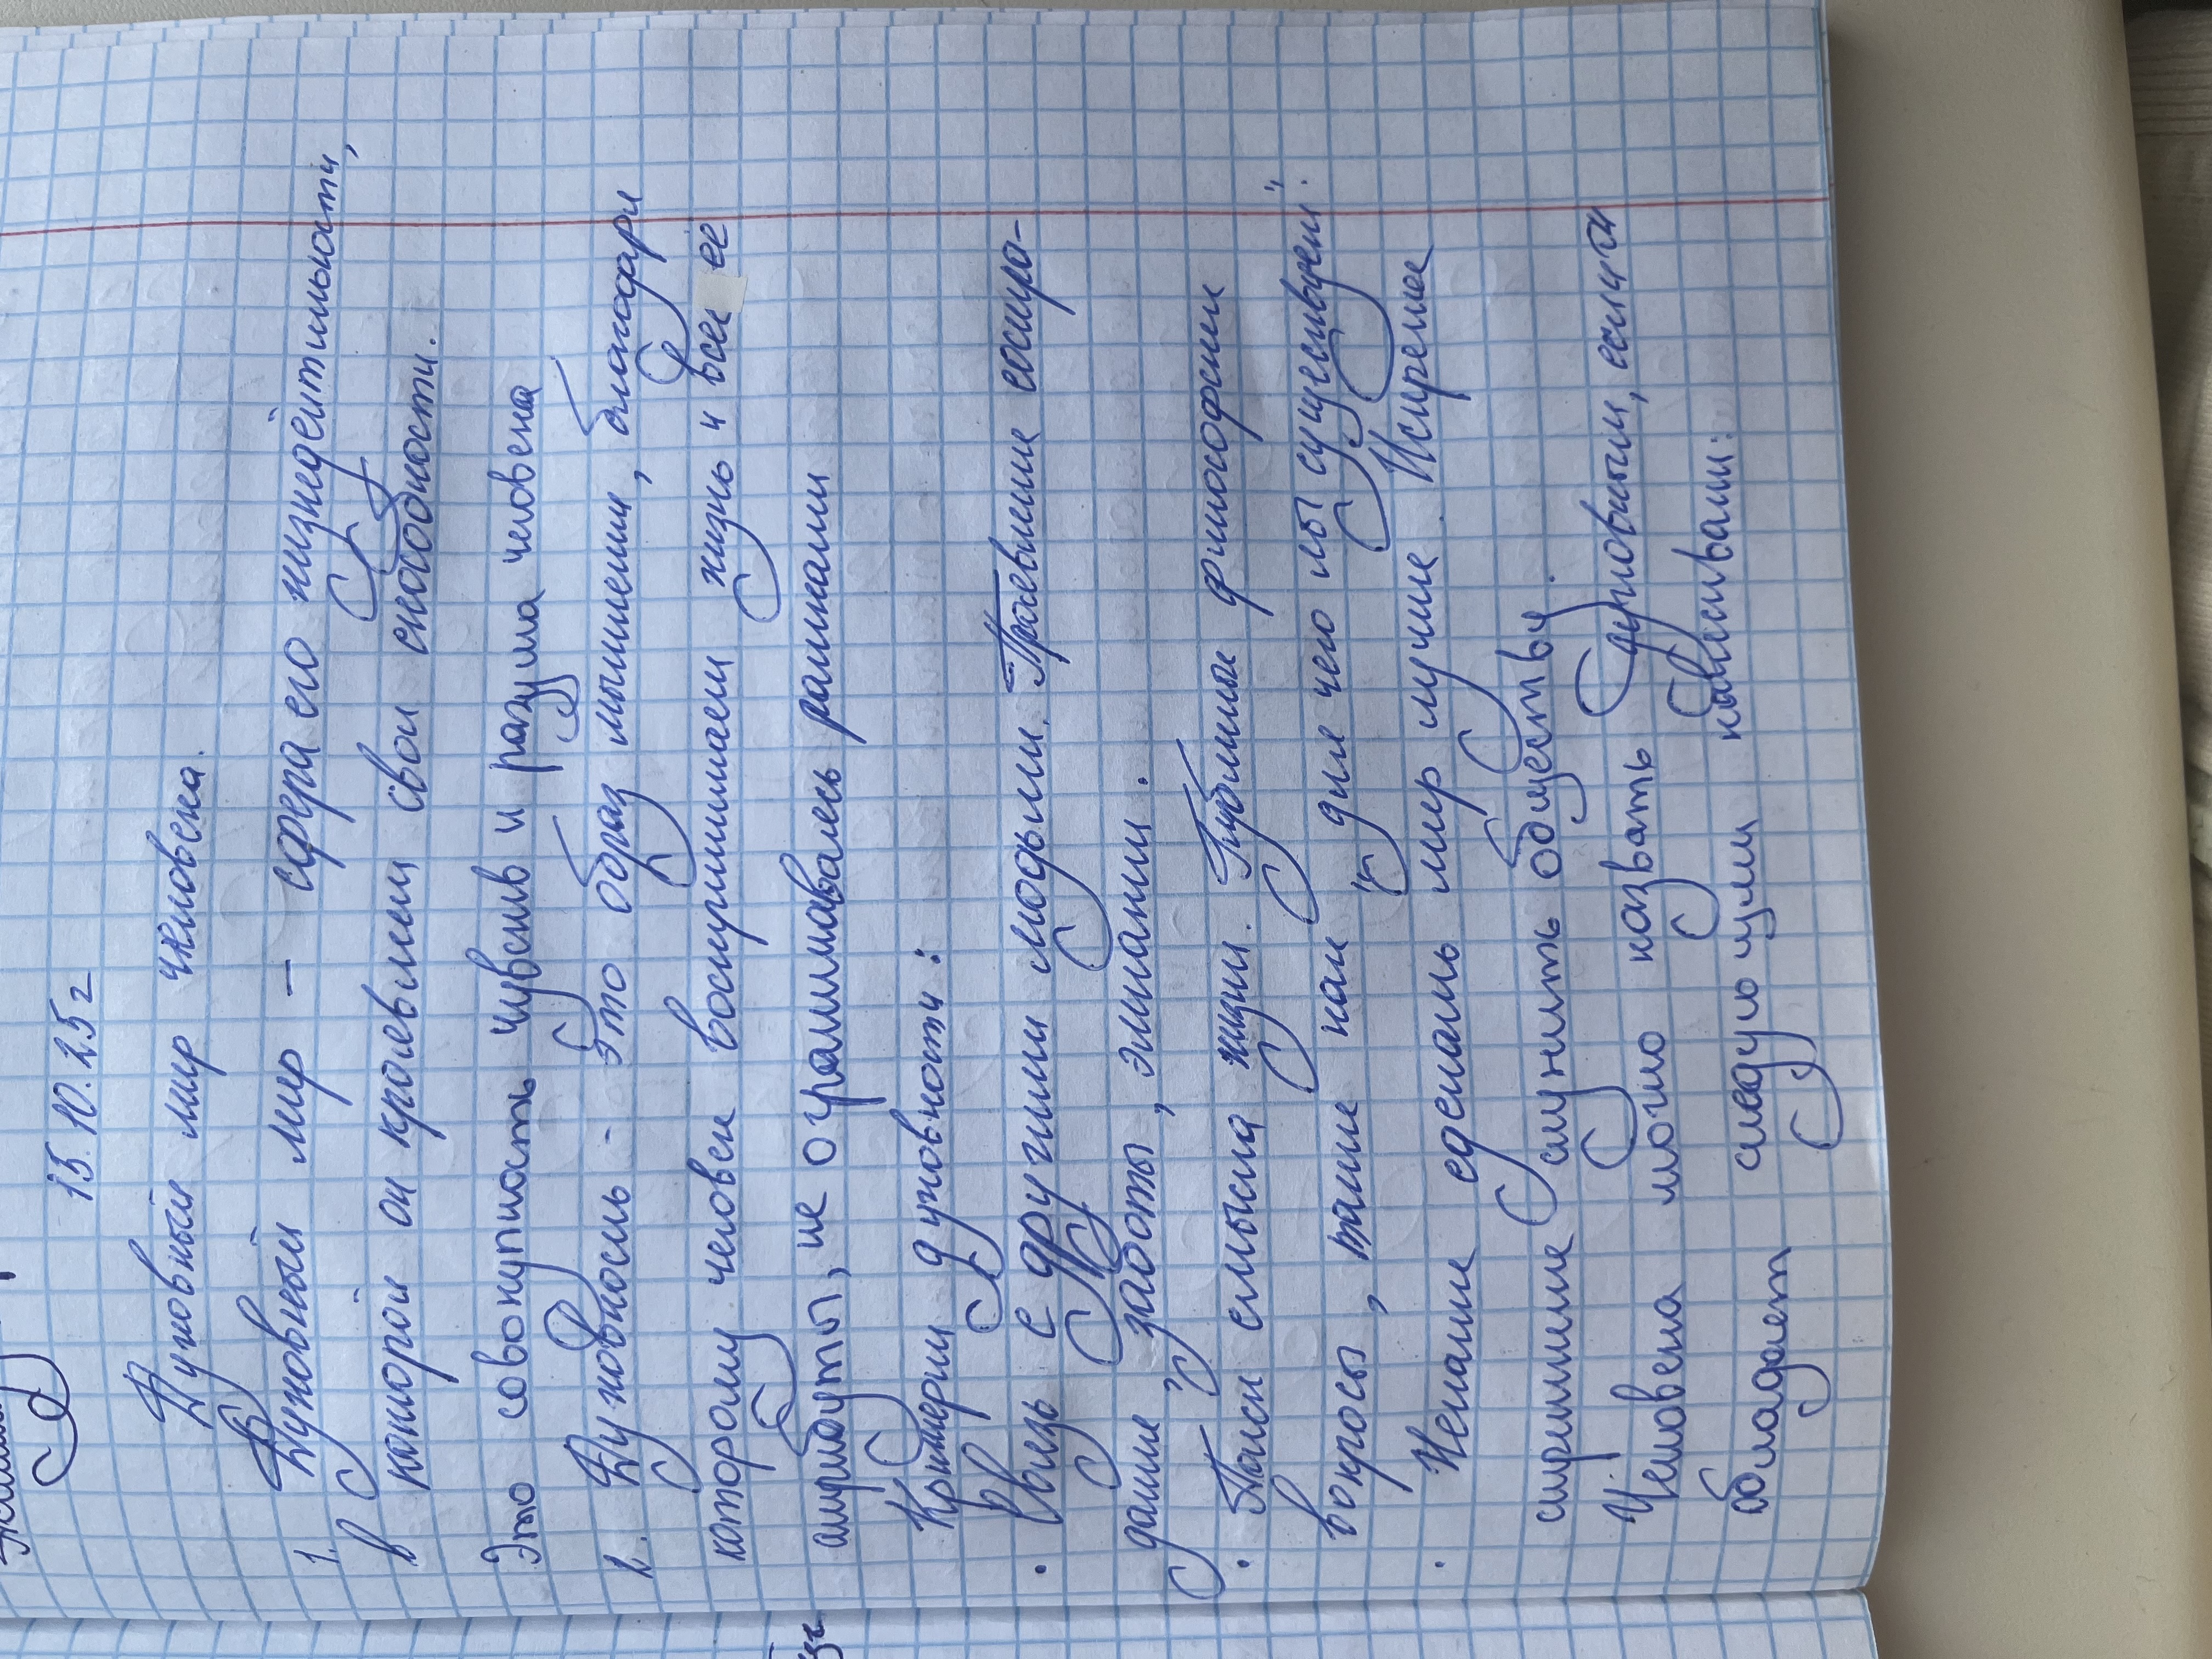 15.10.25г
Духовный мир человека.
1. Духовный мир — сфера его жизнедеятильности,
в которой он проевляет свои способности.
Это совокупность чувств и разума человека
2. Духовность - Это образ мышления, благодаря
которому человек воспринимает жизнь и все её
атрибуты, не ограничиваясь рамками
Критерии духовности:
• Связь с другими людьми. Проевление состра-
дание заботы, эмпатии.
• Поиск смысла жизни. Глубокие философски
вопросы, такие как "для чего мы существуем".
• Желание сделать мир лучше. Искреннее
стремление служить обществу.
Человека можно назвать духовным, если ты
обладает следующими качествами: